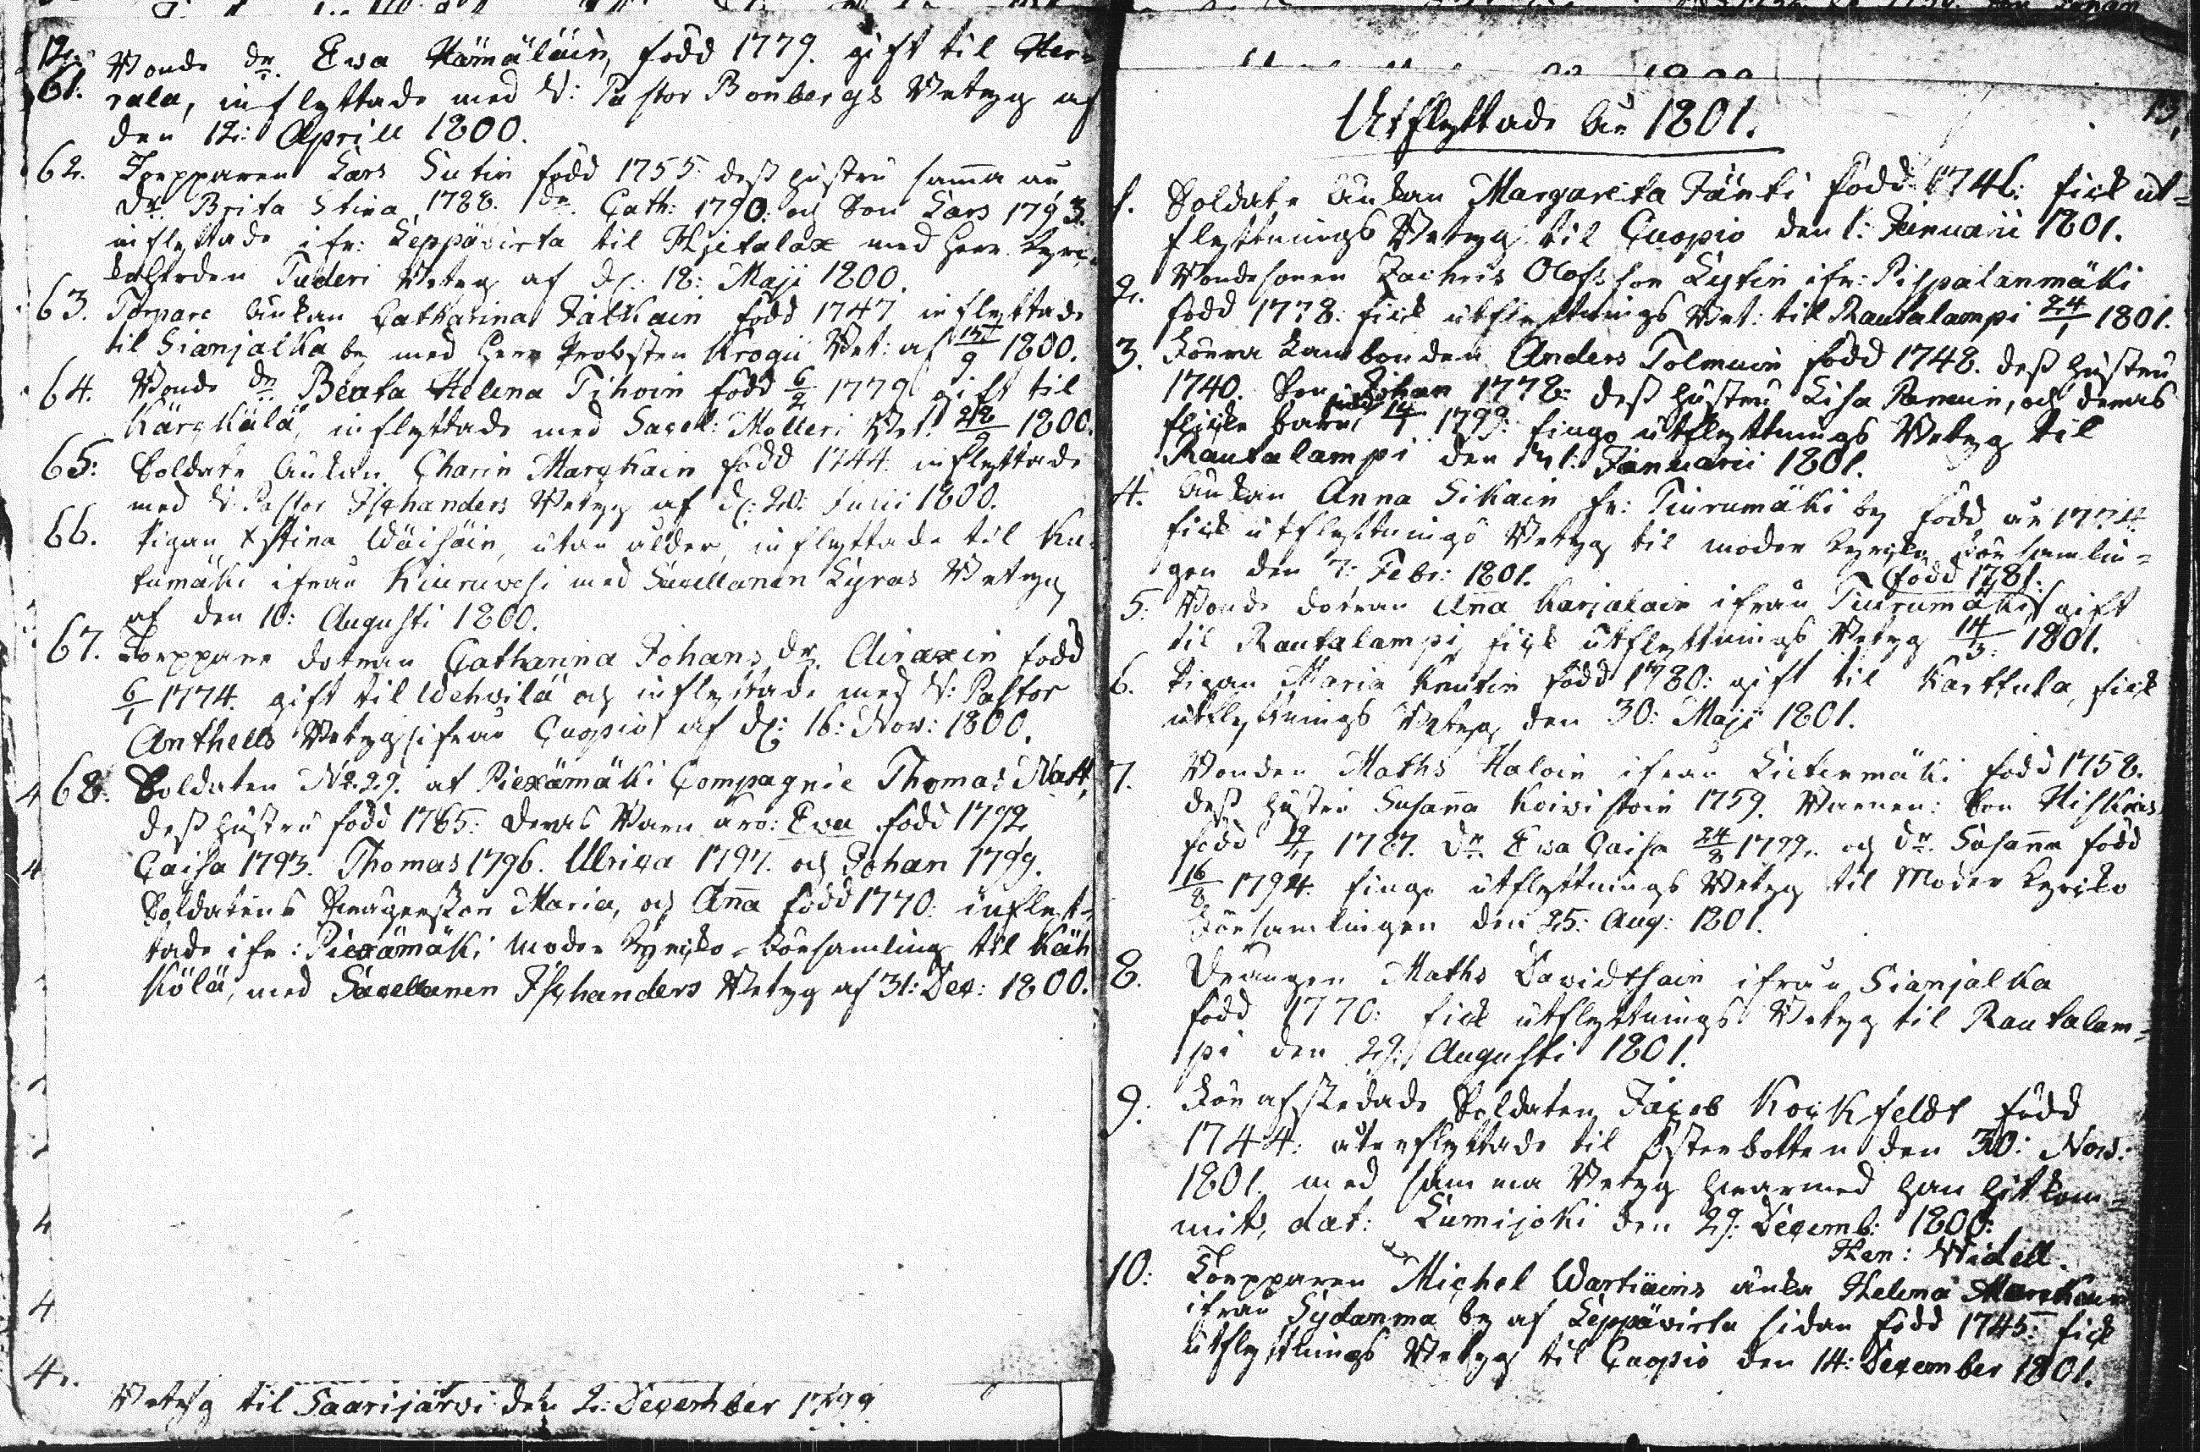 12.
61. Bonde dr. Ewa Hämäläin, född 1779. gift til Her-
rala, inflyttade med V: Pastor Bonbergs Betyg af
den 12: Aprill 1800.
62. Torpparen Lars Sutin född 1755. dess hustru samma år
Dr. Brita Stina 1788. dr. Cath: 1790: och Son Lars 1793.
inflyttade ifr: Leppävirta til Hjetalax med Herr Kyrc-
koherden Tuderi Betyg af d: 18: Maji 1800.
63. Torpare Änkan Catharina Jälkäin född 1747 inflyttade
til Sianjalka by med Herr Probsten Krogii Bet: af 1800.
64. Bonde dr. Beata Helena Tihoin född 6/2 1779 gift til
Kärckälä, inflyttade med Sacel: Molleri Bet. 28/9 1800.
65: Soldate Änkan Charin Marckain född 1744 inflyttade
med V: Pastor Ischanders Betyg af d: 20: Junii 1800.
66. Pigan Xstina Wäisäin, utan ålder, inflyttade til Ku-
tumäki ifrån Kiuruvesi med Sacellanen Lyras Betyg
af den 10: Augusti 1800.
67. Torppare dotran Catharina Johans dr. Airaxin född
6/1 1774. gift til Wehwilä och inflyttade med V: Pastor
Anthells Betyg ifrån Cuopio af d: 16: Nov: 1800.
68. Soldaten No. 29. af Piexämäki Compagnie Thomas Natt,
dess hustru född 1765: deras Barn äro: Ewa född 1792
Caisa 1793. Thomas 1796. Ulrica 1797. och Johan 1799.
Soldatens Swägerskor Maria, och Anna född 1770: inflyt-
tade ifr: Piexämäki Moder Kyrcko-Församling til Käh
kölä, med Sacellanen Ischanders Betyg af 31: Dec: 1800.
Betyg til Saarijärwi den 2: December 1799
13.
Utflyttade År 1801.
1. Soldate Änkan Margareta Jänti född 1746: fick ut-
flyttnings Betyg til Cuopio den 1: Januarii 1801.
2. Bondesonen Zachris Olofsson Lytin ifr: Pispalanmäki
född 1778. fick utflyttnings Bet: til Rautalampi 24/1 1801.
3. Förra Landbonden Anders Tolmuin född 1748. dess hustru
1740. Son Johan 1778: dess hustru Lisa Romuin, och deras
flicke barn född 14/1 1799: fingo utflyttnings Betyg til
Rautalampi den 31: Januarii 1801.
4. Änkan Anna Sikain fr: Tiurumäki by född år 1774
fick utflyttnings Betyg til moder Kyrcko Församlin-
gen den 7: Febr: 1801.
född 1781:
5: Bonde dotran Anna Karjalain ifrån Tiurumäki gift
til Rautalampi, fick utflyttnings Betyg 14/3: 1801.
6. Pigan Maria Knutin född 1780: gift til Karttula, fick
utflyttnings Betyg den 30: Maji 1801.
7. Bonden Maths Haloin ifrån född 1758.
dess hustru Susanna Koiwistoin 1759. Barnen: Son Hiskias
född 1787. Dr. Ewa Caisa och dr. Susanna född
16/8 1794. fingo utflyttnings Betyg til Moder Kyrcko
Församlingen den 25: Aug: 1801.
8. Drängen Maths Davidsain ifrån Sianjalka
född 1770: fick utflyttnings Betyg til Rautalam-
pi den 29: Augusti 1801.
9. För afskedade Soldaten Jacob Kockfeldt född
1744: återflyttade til Österbotten den 30: Nov:
1801. med samma Betyg hwarmed han hitkom-
mit, dat: Lumijoki den 29. Decemb: 1800:
Hen: Widell.
10: Torpparen Michel Wartiains änka Helena Marckain
ifrån Sydanma by af Leppäwirta sidan född 1745: fick
utflyttnings Betyg til Cuopio den 14: December 1801.